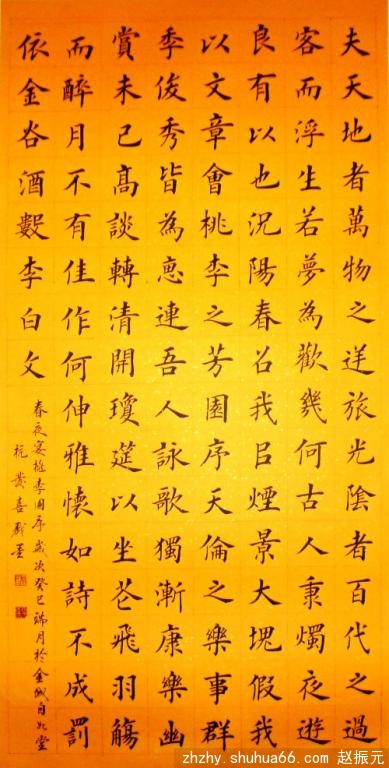 夫天地者萬物之逆旅光陰者百代之過
客而浮生若夢為歡幾何古人秉燭夜遊
良有以也況陽春召我㠯煙景大塊假我
以文章會桃李之芳園序天倫之樂事群
季俊秀皆為惠連吾人詠歌獨漸康樂幽
賞未已高談轉清開瓊筵以坐花飛羽觴
而醉月不有佳作何伸雅懷如詩不成罰
依金谷酒數李白文
春夜宴桃李園序歲次癸巳端月於金城自如堂
zhzhy.shuhua66.com 赵振元